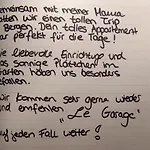 emeinsam mit meiner Mama
atten wir einen tollen Trip
Bergen. Dein tolles Appartement
ar perfekt für die Tage!
ie liebevolle Einrichtung und
as sonnige Plätzchen im
arten haben uns besonders
efallen.
ir kommen sehr gerne wieder
nd empfehlen "Le Garage"
uf jeden Fall weiter!